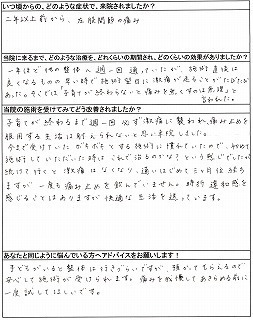 いつ頃からの、どのような症状で、来院されましたか？
二年以上前から、左股関節の痛み
当院に来るまで、どのような治療を、どれくらいの期間され、どのくらいの効果がありましたか？
一年ほど他の整体へ週一回通っていたが、施術直後は
良くなるものの早い時で施術翌日に激痛が走ることがたびたび
あった。そこでは子育てが終わらないと痛みを無くすのは無理と
言われた。
当院の施術を受けてみてどう改善されましたか？
子育てが終わるまで週一回必ず激痛に襲われ、痛み止めを
服用する生活は耐えられないと思い来院しました。
今まで受けていたボキボキとする施術に慣れていたので、初めて
施術していただいた時は「これで治るのかな？」という感じでしたが
続けて行くと激痛はなくなり、通いはじめて三ヶ月位経ち
ますが一度も痛み止めを飲んでいません。時折違和感を
感じることはありますが快適な生活を送っています。
あなたと同じように悩んでいる方へアドバイスをお願いします！
子どもがいると整体は行きづらいですが、預かってもらえるので
安心して施術が受けられます。痛みを我慢してあきらめる前に
一度試してほしいです。